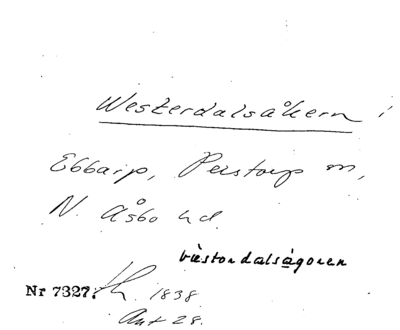 Westerdalsåkern i
Ebbarp, Perstorp sn,
N. Åsbo hd.
västərdalsågoren
Nr 7327. 1838
Ant 28.